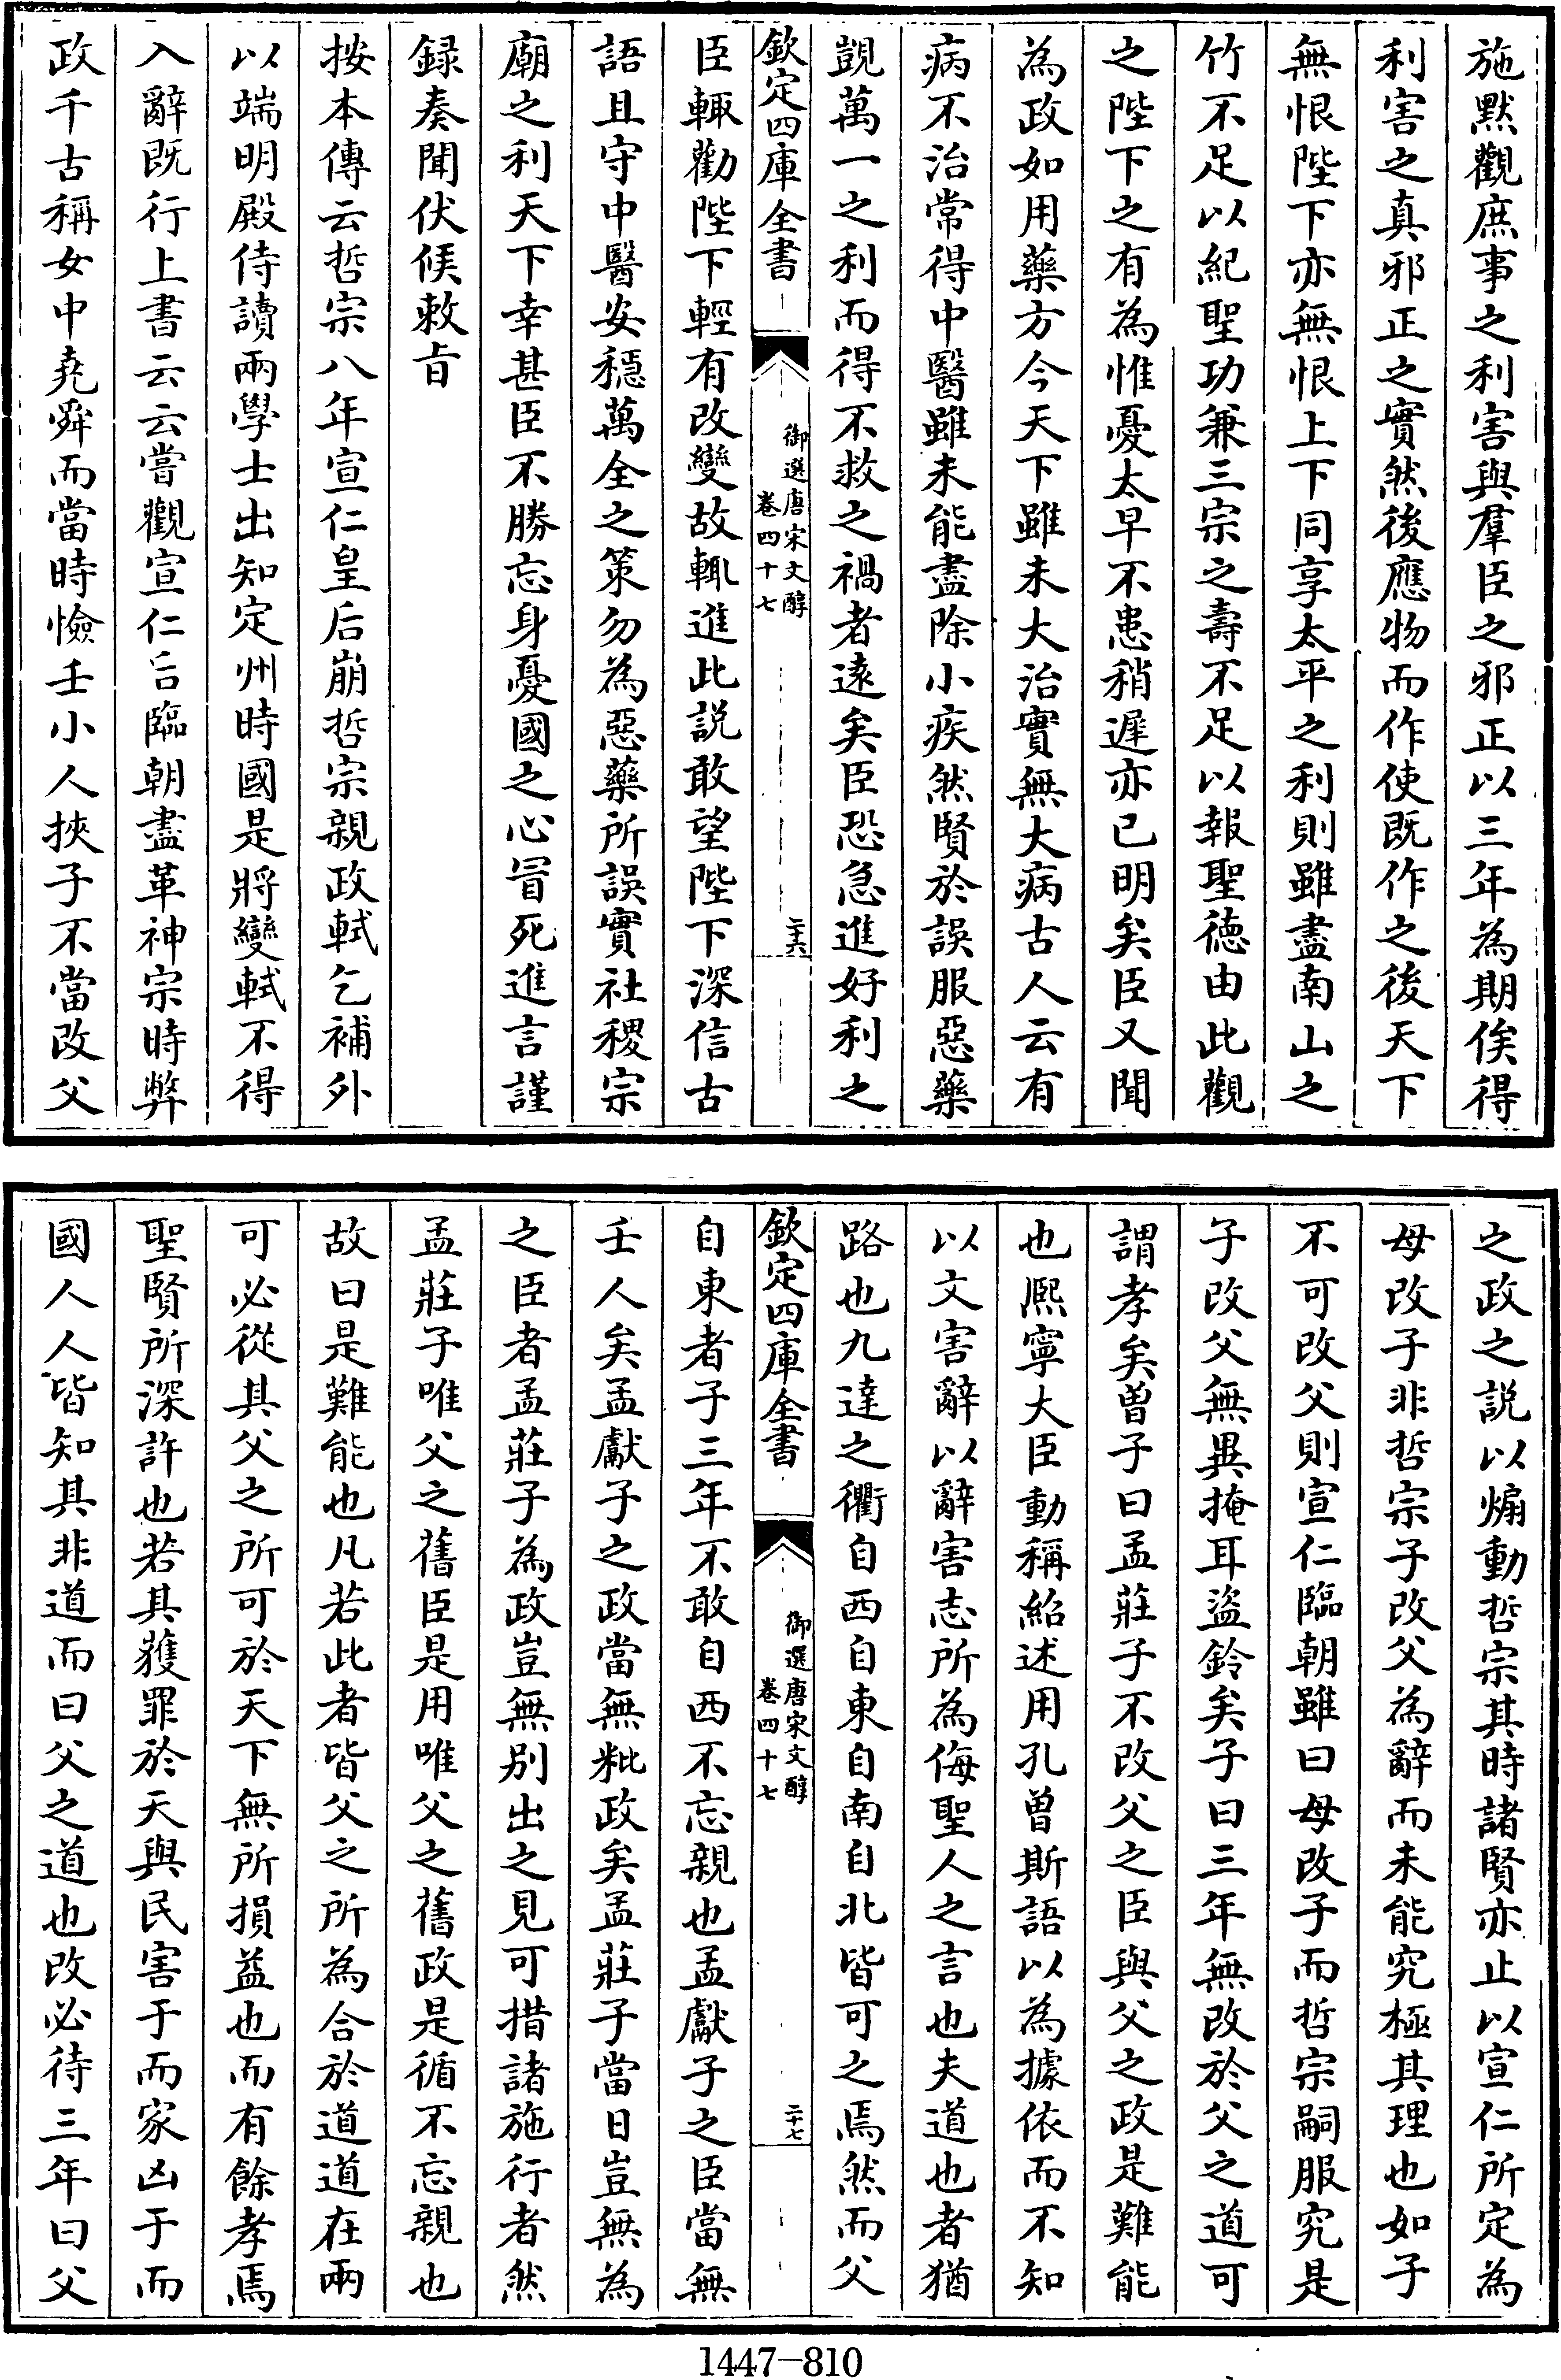 施黙觀庶事之利害與羣臣之邪正以三年為期俟得
利害之真邪正之實然後應物而作使既作之後天下
無恨陛下亦無恨上下同享太平之利則雖盡南山之
竹不足以紀聖功兼三宗之壽不足以報聖徳由此觀
之陛下之有為惟憂太早不患稍遲亦已明矣臣又聞
為政如用藥方今天下雖未大治實無大病古人云有
病不治常得中醫雖未能盡除小疾然賢於誤服惡藥
覬萬一之利而得不救之禍者逺矣臣恐急進好利之
欽定四庫全書
御選唐宋文醇
卷四十七
二十六
臣輙勸陛下輕有改變故輒進此説敢望陛下深信古
語且守中醫安穏萬全之策勿為惡藥所誤實社稷宗
廟之利天下幸甚臣不勝忘身憂國之心冒死進言謹
録奏聞伏候敕㫖
按本傳云哲宗八年宣仁皇后崩哲宗親政軾乞補外
以端明殿侍讀兩學士出知定州時國是將變軾不得
入辭既行上書云云嘗觀宣仁后臨朝盡革神宗時弊
政千古稱女中堯舜而當時憸壬小人挾子不當改父
之政之説以煽動哲宗其時諸賢亦止以宣仁所定為
母改子非哲宗子改父為辭而未能究極其理也如子
不可改父則宣仁臨朝雖曰母改子而哲宗嗣服究是
子改父無異掩耳盜鈴矣子曰三年無改於父之道可
謂孝矣曽子曰孟莊子不改父之臣與父之政是難能
也熈寧大臣動稱紹述用孔曽斯語以為據依而不知
以文害辭以辭害志所為侮聖人之言也夫道也者猶
路也九達之衢自西自東自南自北皆可之焉然而父
欽定四庫全書
御選唐宋文醇
卷四十七
二十七
自東者子三年不敢自西不忘親也孟獻子之臣當無
壬人矣孟獻子之政當無粃政矣孟莊子當日豈無為
之臣者孟莊子為政豈無别出之見可措諸施行者然
孟莊子唯父之舊臣是用唯父之舊政是循不忘親也
故曰是難能也凡若此者皆父之所為合於道道在兩
可必從其父之所可於天下無所損益也而有餘孝焉
聖賢所深許也若其獲罪於天與民害于而家凶于而
國人人皆知其非道而曰父之道也改必待三年曰父
1447-810